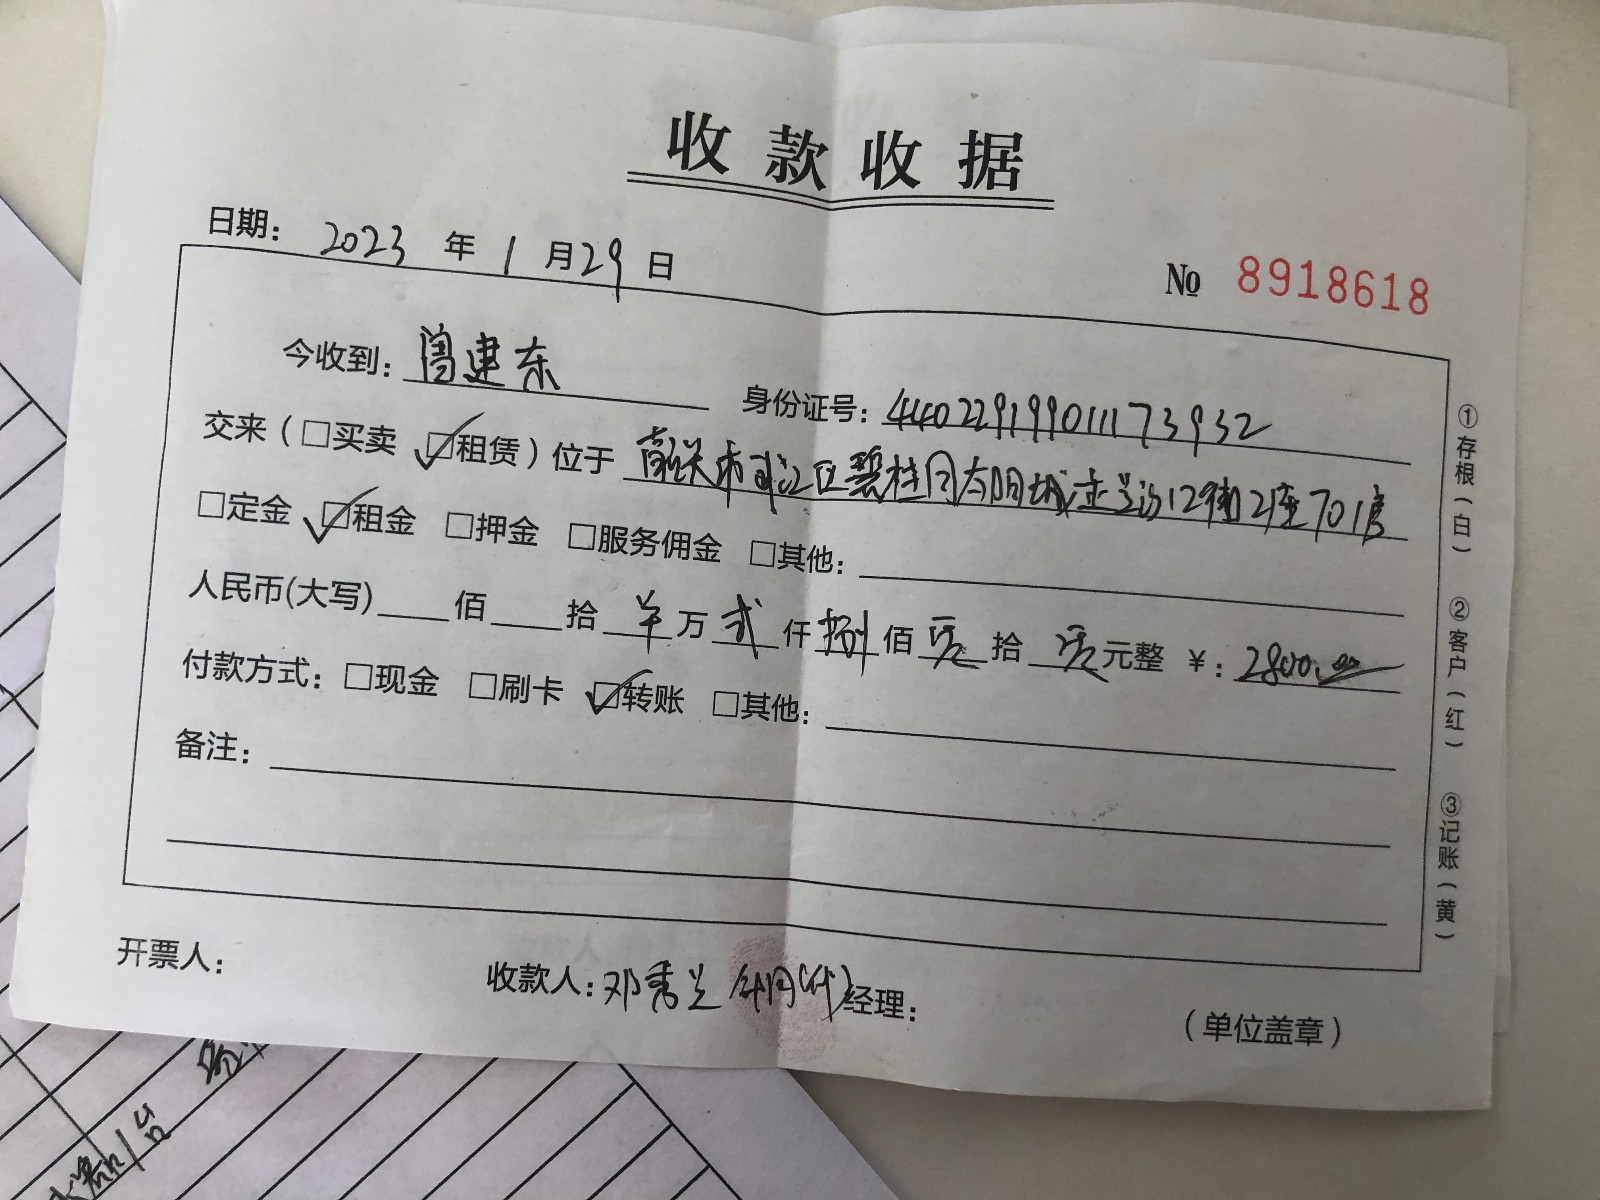 收款收据
日期: 2023 年 1 月 29 日
№ 8918618
今收到: 曾建东 身份证号: 440229199011173932
交来（□买卖 ☑租赁）位于 韶关市武江区碧桂园太阳城 12街2座701房
□定金 ☑租金 □押金 □服务佣金 □其他:
人民币(大写) 佰 拾 羊 万 贰 仟 捌 佰 零 拾 零 元整 ¥: 2800.00
付款方式: □现金 □刷卡 ☑转账 □其他:
备注:
开票人: 收款人: 邓秀兰 (代) 经理: （单位盖章）
①存根(白) ②客户(红) ③记账(黄)